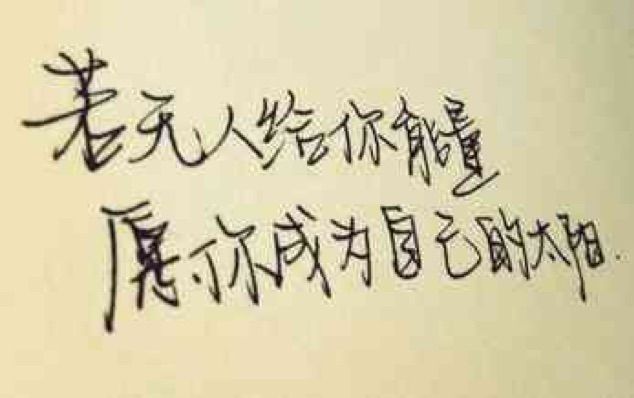 若无人给你能量
愿你成为自己的太阳.